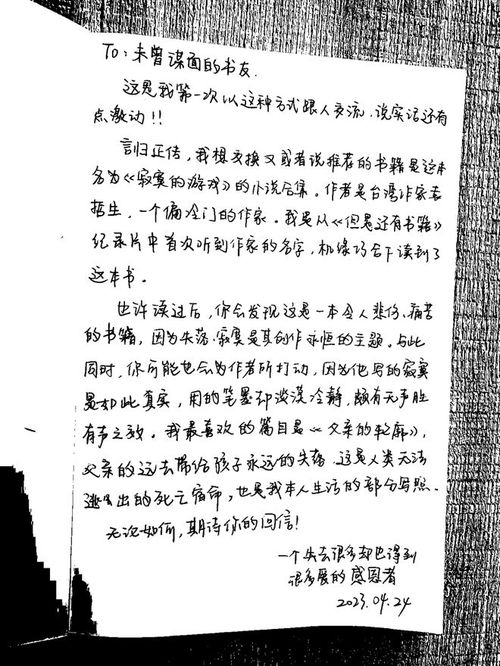 To：未曾谋面的书友.
这是我第一次以这种方式跟人交流，说实话还有
点激动!!
言归正传，我想交换又或者说推荐的书籍是这本
名为《寂寞的游戏》的小说合集。作者是台湾作家袁
哲生，一个偏冷门的作家。我是从《但是还有书籍》
纪录片中首次听到作家的名字，机缘巧合下读到了
这本书。
也许读过后，你会发现这是一本令人悲伤、痛苦
的书籍，因为失落、寂寞是其创作永恒的主题。与此
同时，你可能也会为作者所打动，因为他写的寂寞
是如此真实，用的笔墨却淡漠冷静，颇有无声胜
有声之效。我最喜欢的篇目是《父亲的轮廓》，
父亲的远去带给孩子永远的失落，这是人类无法
逃出的死亡宿命，也是我本人生活的部分写照.
无论如何，期待你的回信!
一个失去很多却也得到
很多爱的感恩者
2023.04.24